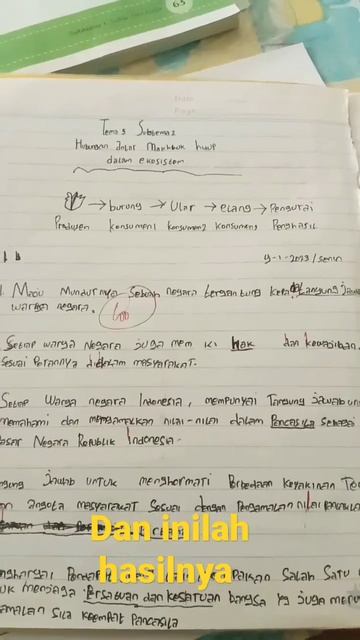 63
Tema 5 Subtema 2
Hubungan antar Makhluk hidup
dalam ekosistem
→ burung → Ular → elang → Pengurai
Produsen konsumen1 konsumen2 konsumen3 Penghasil
9-1-2023 / senin
1. Maju Mundurnya Sebuah negara bergantung kepada Langsung
warga negara.
100
Setiap warga Negara juga memiliki Hak dan kewajiban
Sesuai Perannya didalam masyarakat.
Setiap Warga negara Indonesia, mempunyai Tanggung jawab un
memahami dan mengamalkan nilai-nilai dalam Pancasila Sebagai
asar Negara Republik Indonesia.
gung jawab untuk menghormati Perbedaan keyakinan
an anggota masyarakat Sesuai dengan Pengamalan nilai
nghargai Salah Satu
uk menjaga Persatuan dan kesatuan bangsa yg juga
amalan Sila keempat Pancasila
Dan inilah
hasilnya